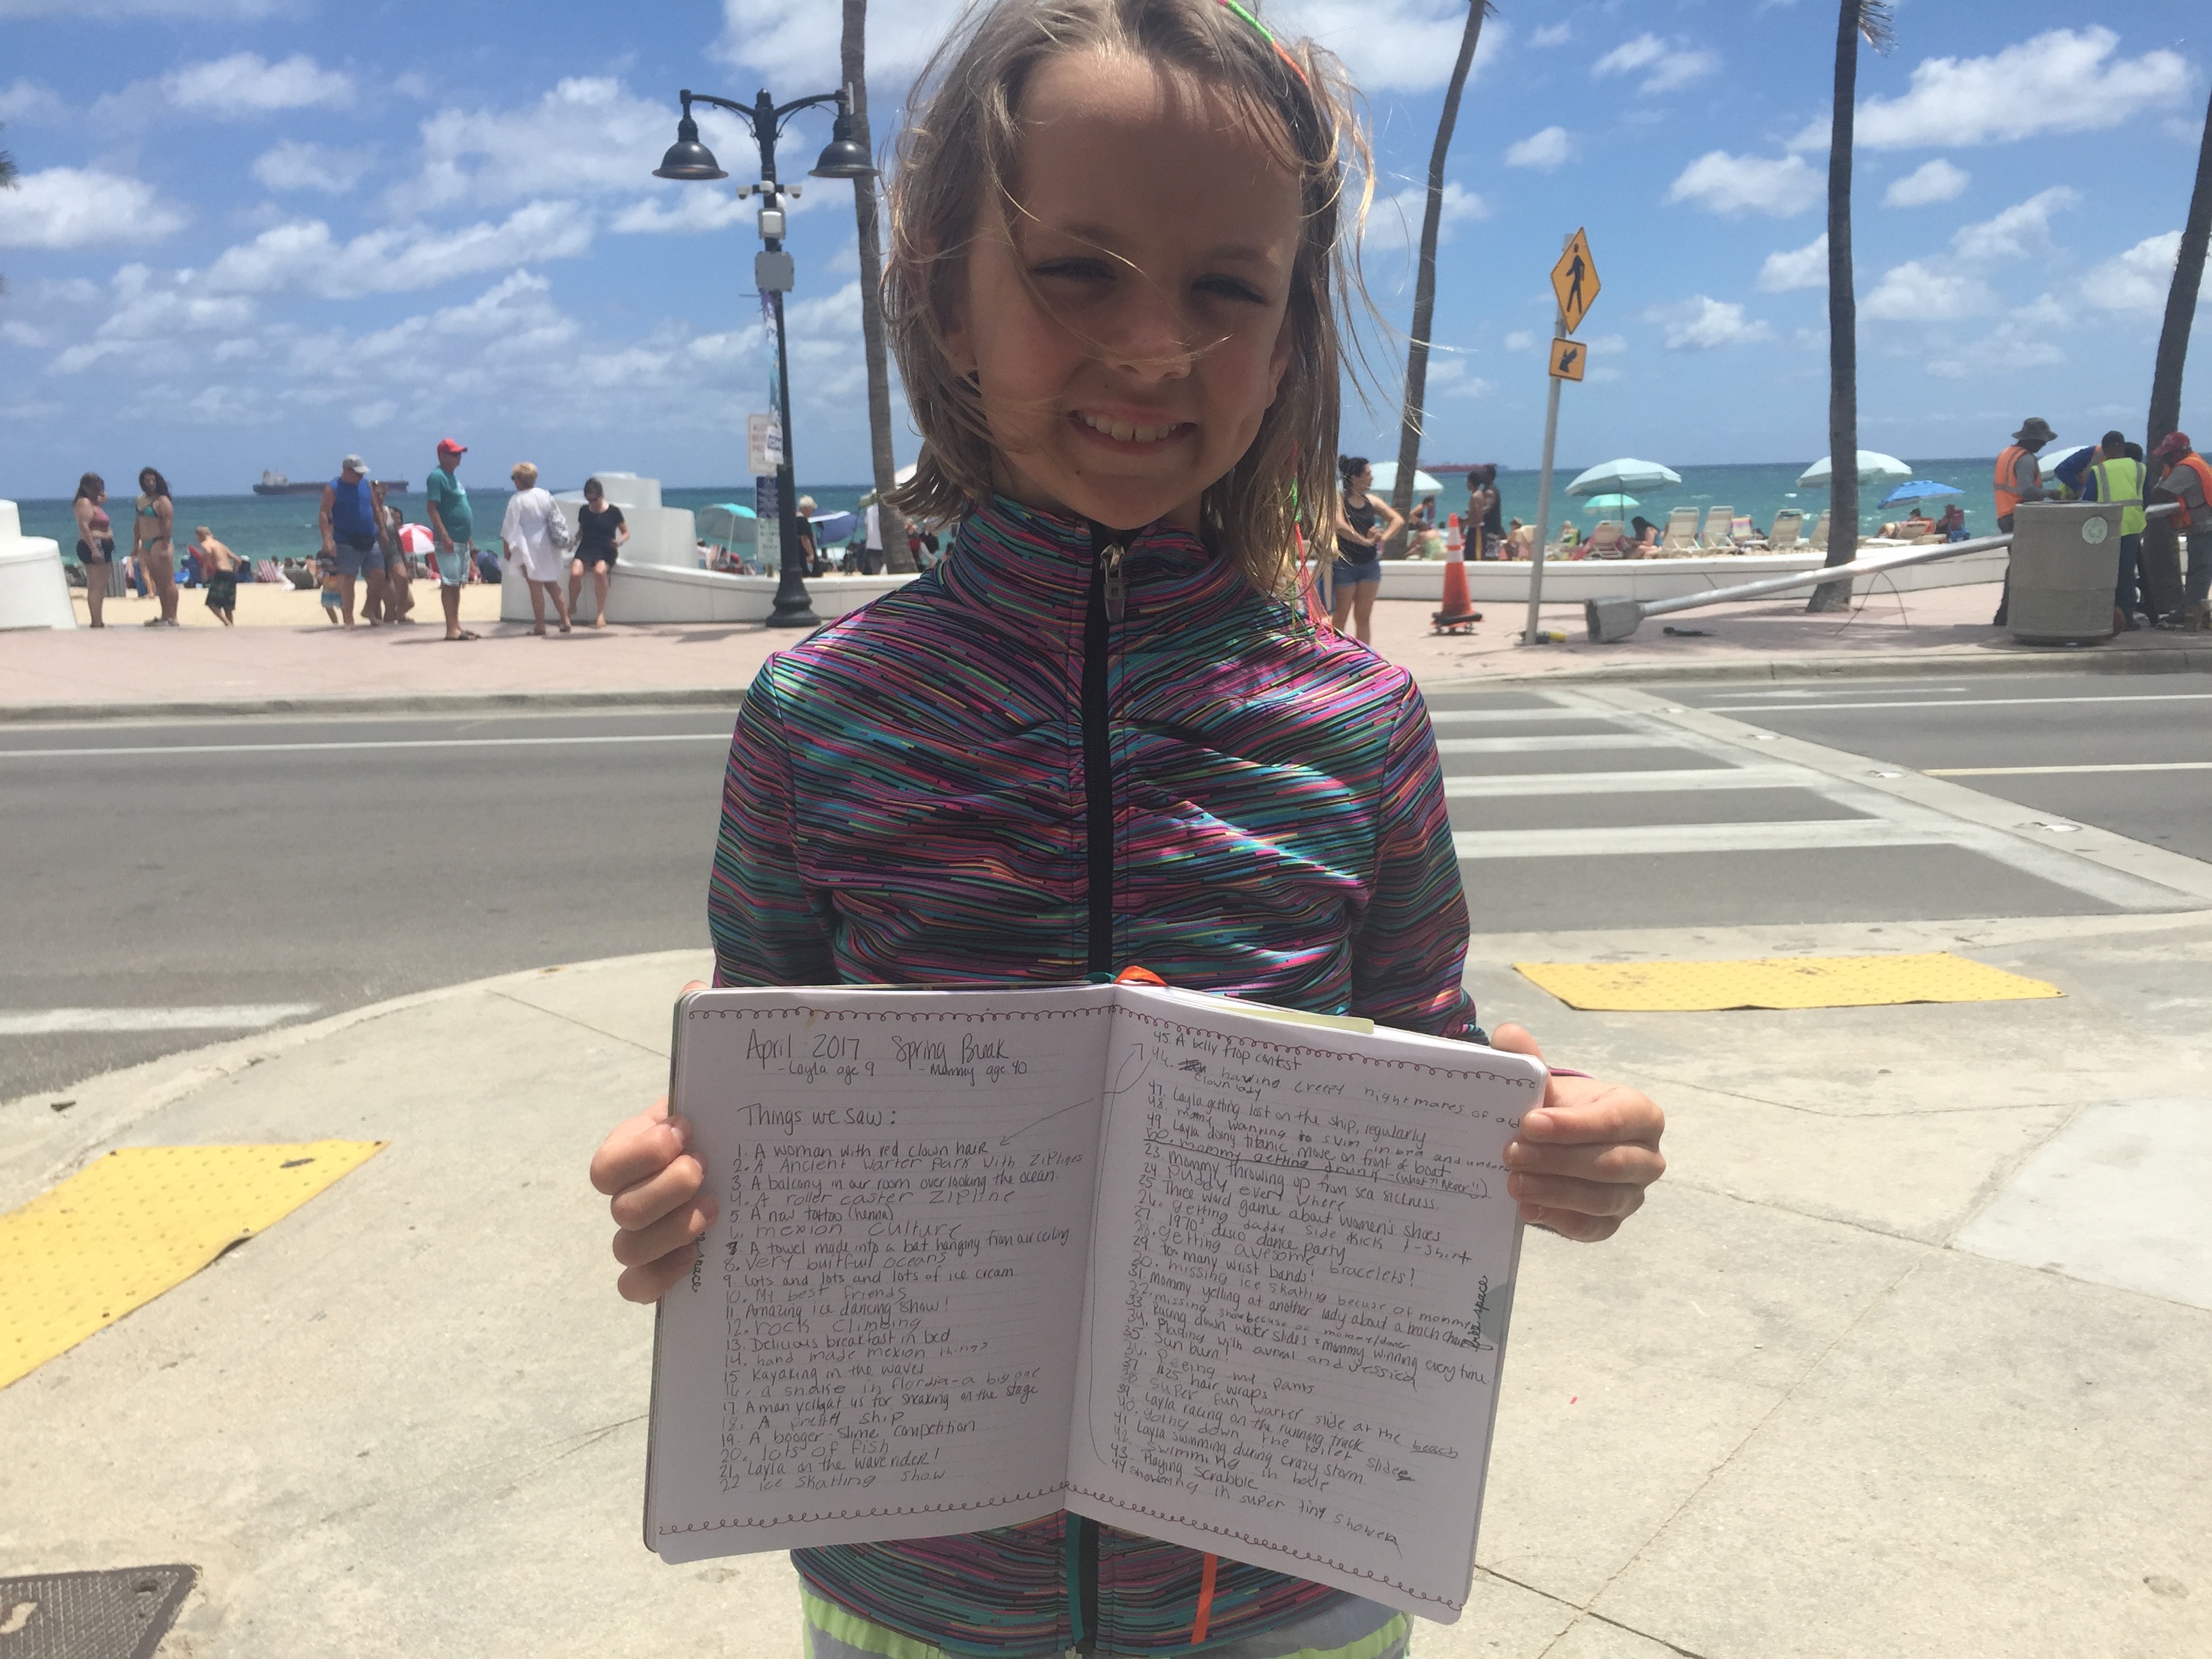 April 2017 Spring Break
- Layla age 9 - Mommy age 40
Things we saw:
1. A woman with red clown hair
2. A Ancient Warter Park with Ziplines
3. A balcony in our room overlooking the ocean.
4. A roller caster Zipline
5. A new tattoo (henna)
6. mexion culture
7. A towel made into a bat hanging from our ceiling
8. very buitful oceans
9. Lots and lots and lots of ice cream.
10. My best friends
11. Amazing ice dancing show!
12. rock climbing
13. Delicious breakfast in bed
14. hand made mexion things
15. Kayaking in the waves
16. a snake in flordia - a big one
17. A man yell at us for sneaking on the stage
18. A pretty ship
19. A booger-slime competition
20. lots of fish
21. Layla on the wave rider!
22 ice skatling show
free space
45. A belly flop contest
46. having creepy nightmares of old
clown lady
47. Layla getting lost on the ship, regularly
48. mom wanning to swim in bra and under
49. Layla doing titanic move on front of boat
50. mommy getting drunk - (what?! Never!!)
23. Mommy throwing up from sea sickness.
24. puddy every where
25. Three word game about women's shoes
26. getting daddy side kick t-shirt
27. 1970's disco dance party
28. getting awesome bracelets!
29. too many wrist bands!
30. missing ice skatting becuse of mommy
31. Mommy yelling at another lady about a beach chair
32. missing show becuse of mommy/dinner
33. Racing down water slides & mommy winning every time
34. Plading with avreal and Jessica
35. Sun burn!
36. Peeing my pants
37. hair wraps
38. super fun warter slide at the beach
39. Layla racing on the running track
40. going down the toilet slide
41. Layla swimming during crazy storm
42. Swimming in
43. Playing Scrabble
44 showering in super tiny shower
free space